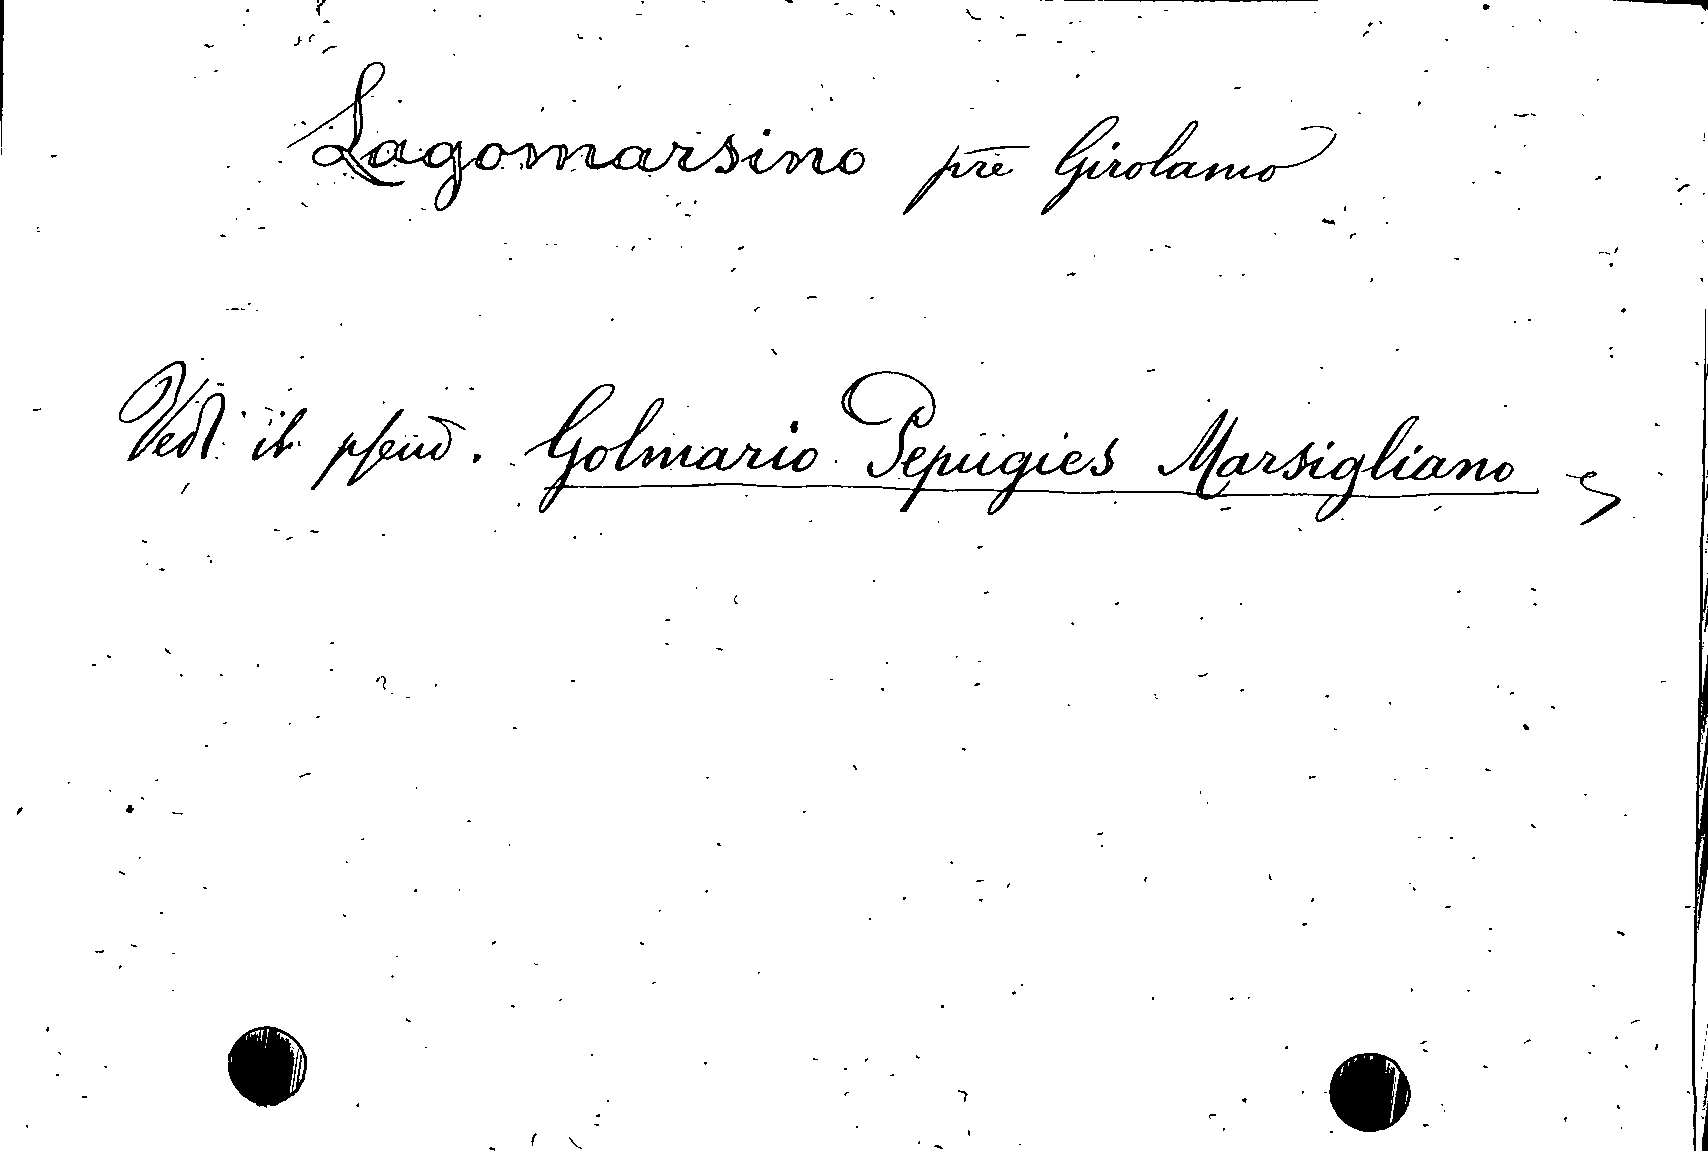 Lagomarsino pre Girolamo
Vedi il pseud. Golmario Pepugies Marsigliano